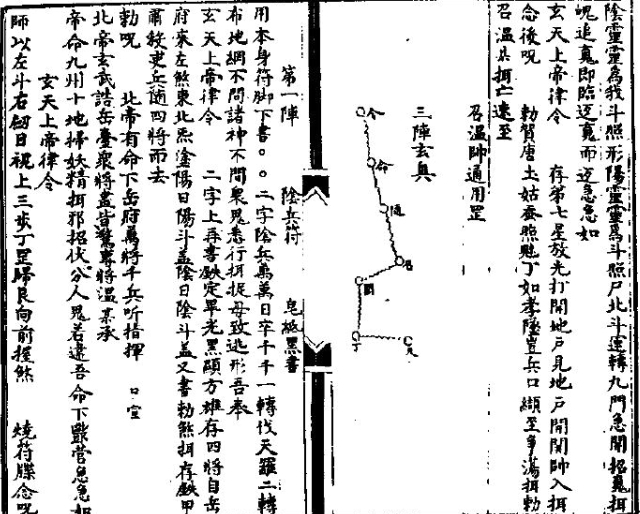 陰靈靈爲我斗照形陽靈靈爲斗照尸北斗運轉九門急開招䰟捉
䰟追䰟即臨迅䰟而迅急急如
玄天上帝律令　存第七星放光打開地戶見地戶開関帥入捉
念後呪　勅賀唐土姑蚕照魁丁如孝陸豈兵口纈至爭蕩捉勅
召溫某捉亡速至
召溫帥通用罡
三陣玄奥
令
命
隨
罡
丁
天
第一陣　陰兵符　皂紙墨書
用本身符脚下書。。二字陰兵萬萬日卒千千一轉伐天羅二轉
布地網不問諸神不問衆鬼悉行捉捉毋致逃形吾奉
玄天上帝律令　二字上再書定畢光黑頭方雄存四將自岳
府來左煞東北炁塗陽日陽斗蓋陰日陰斗蓋又書勅煞捉存甲
肅殺吏兵随四將而去
勅呪　北帝有命下岳府萬將千兵听指揮　口宣
北帝玄武誥岳臺衆將盡皆驚專將溫某承
帝命九州十地掃妖精捉邪招伏分人鬼若違吾命下酆營急急如
玄天上帝律令
師以左斗右劒日視上三歩丁罡歸艮向前握煞　燒符牒念呪